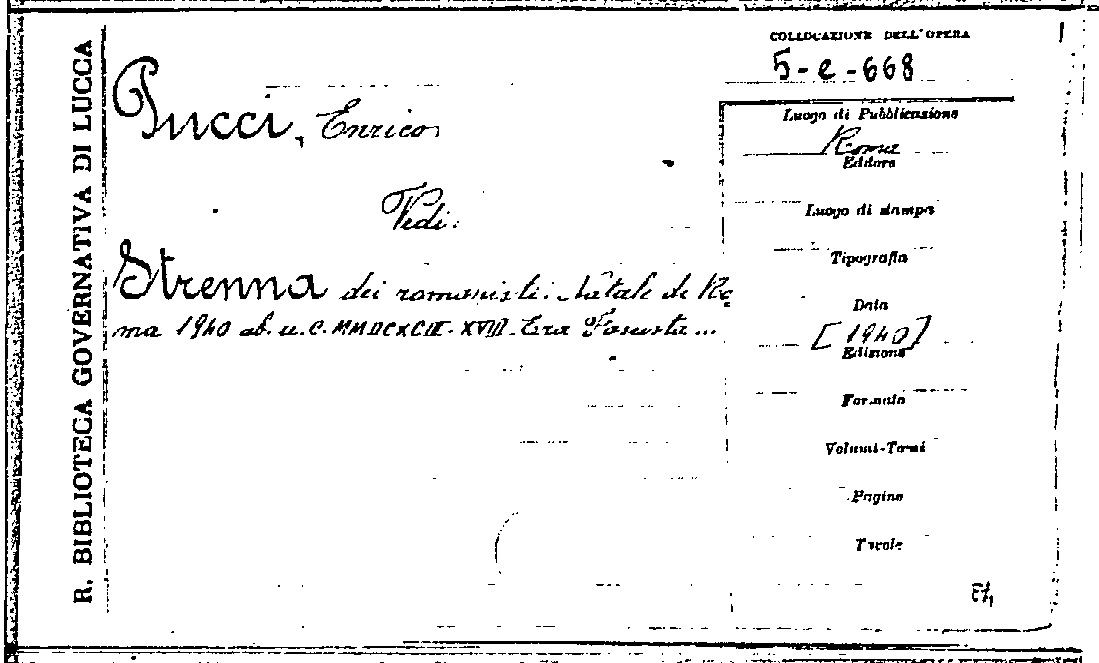 R. BIBLIOTECA GOVERNATIVA DI LUCCA
COLLOCAZIONE DELL'OPERA
5-e-668
Pucci, Enrico
Vedi:
Strenna dei romanisti. Natale di Ro
ma 1940 ab. u.c. MMDCXCIII-XVIII Era Fascista...
Luogo di Pubblicazione
Roma
Editore
Luogo di stampa
Tipografia
Data
[1940]
Edizione
Formato
Volumi-Tomi
Pagine
Tavole